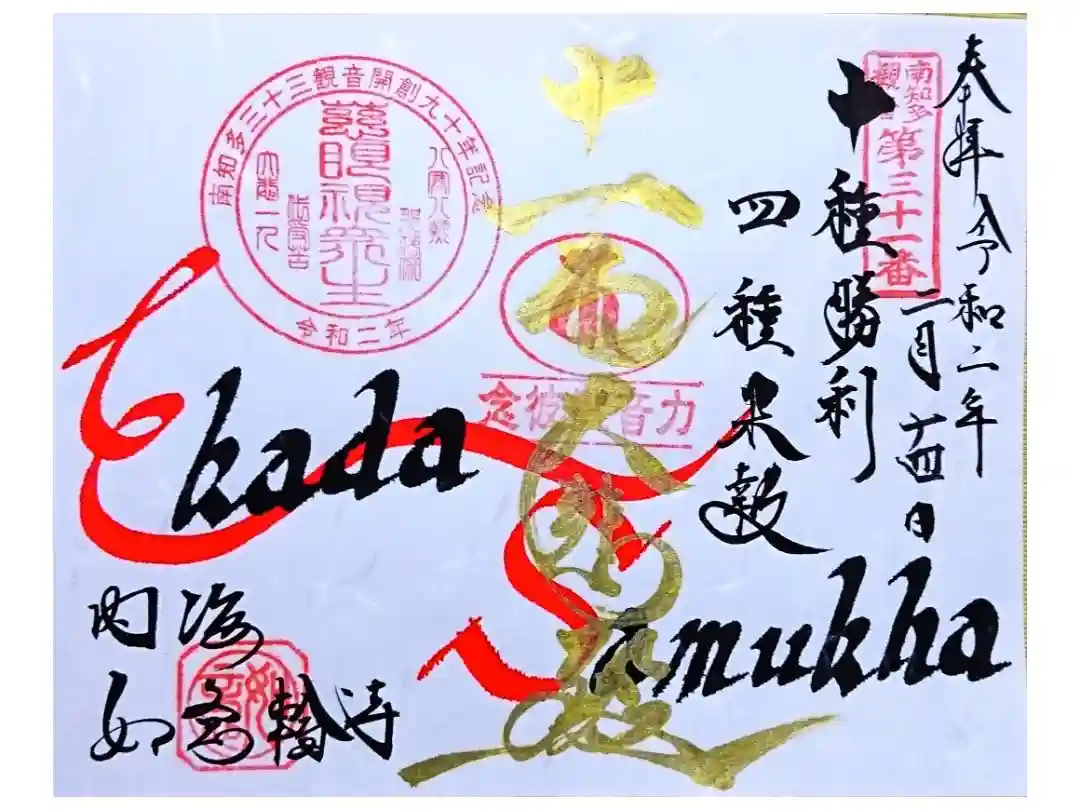 奉拝 令和二年
二月廿四日
南知多
観音
第三十一番
十種勝利
四種未報
十一面大悲殿
南知多三十三観音開創九十年記念
慈眼視衆生
大悲一九
代受苦
令和二年
念彼
音力
Ekada
Samukha
内海
如意輪寺